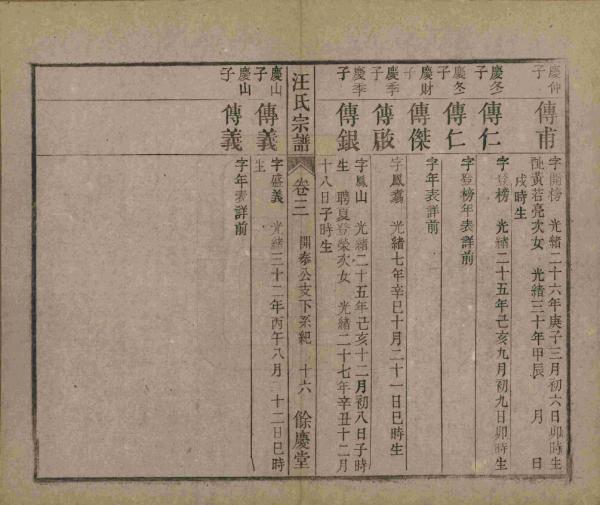 慶仲子
傳甫
字開榜 光緒二十六年庚子三月初六日卯時生
黃若亮次女 光緒三十年甲辰 月 日
戌時生
慶冬子
傳仁
字登榜 光緒二十五年己亥九月初九日卯時生
慶冬子
傳仁
字登榜年表詳前
慶財子
傳傑
字年表詳前
慶季子
傳啟
字鳳嘉 光緒七年辛巳十月二十一日巳時生
慶季子
傳銀
字鳳山 光緒二十五年己亥十二月初八日子時
生 聘夏登榮次女 光緒二十七年辛丑十二月
十八日子時生
汪氏宗譜
卷三
開泰公支下系紀 十六
餘慶堂
慶山子
傳義
字盛義 光緒三十二年丙午八月 十二日巳時
生
慶山子
傳義
字年表詳前